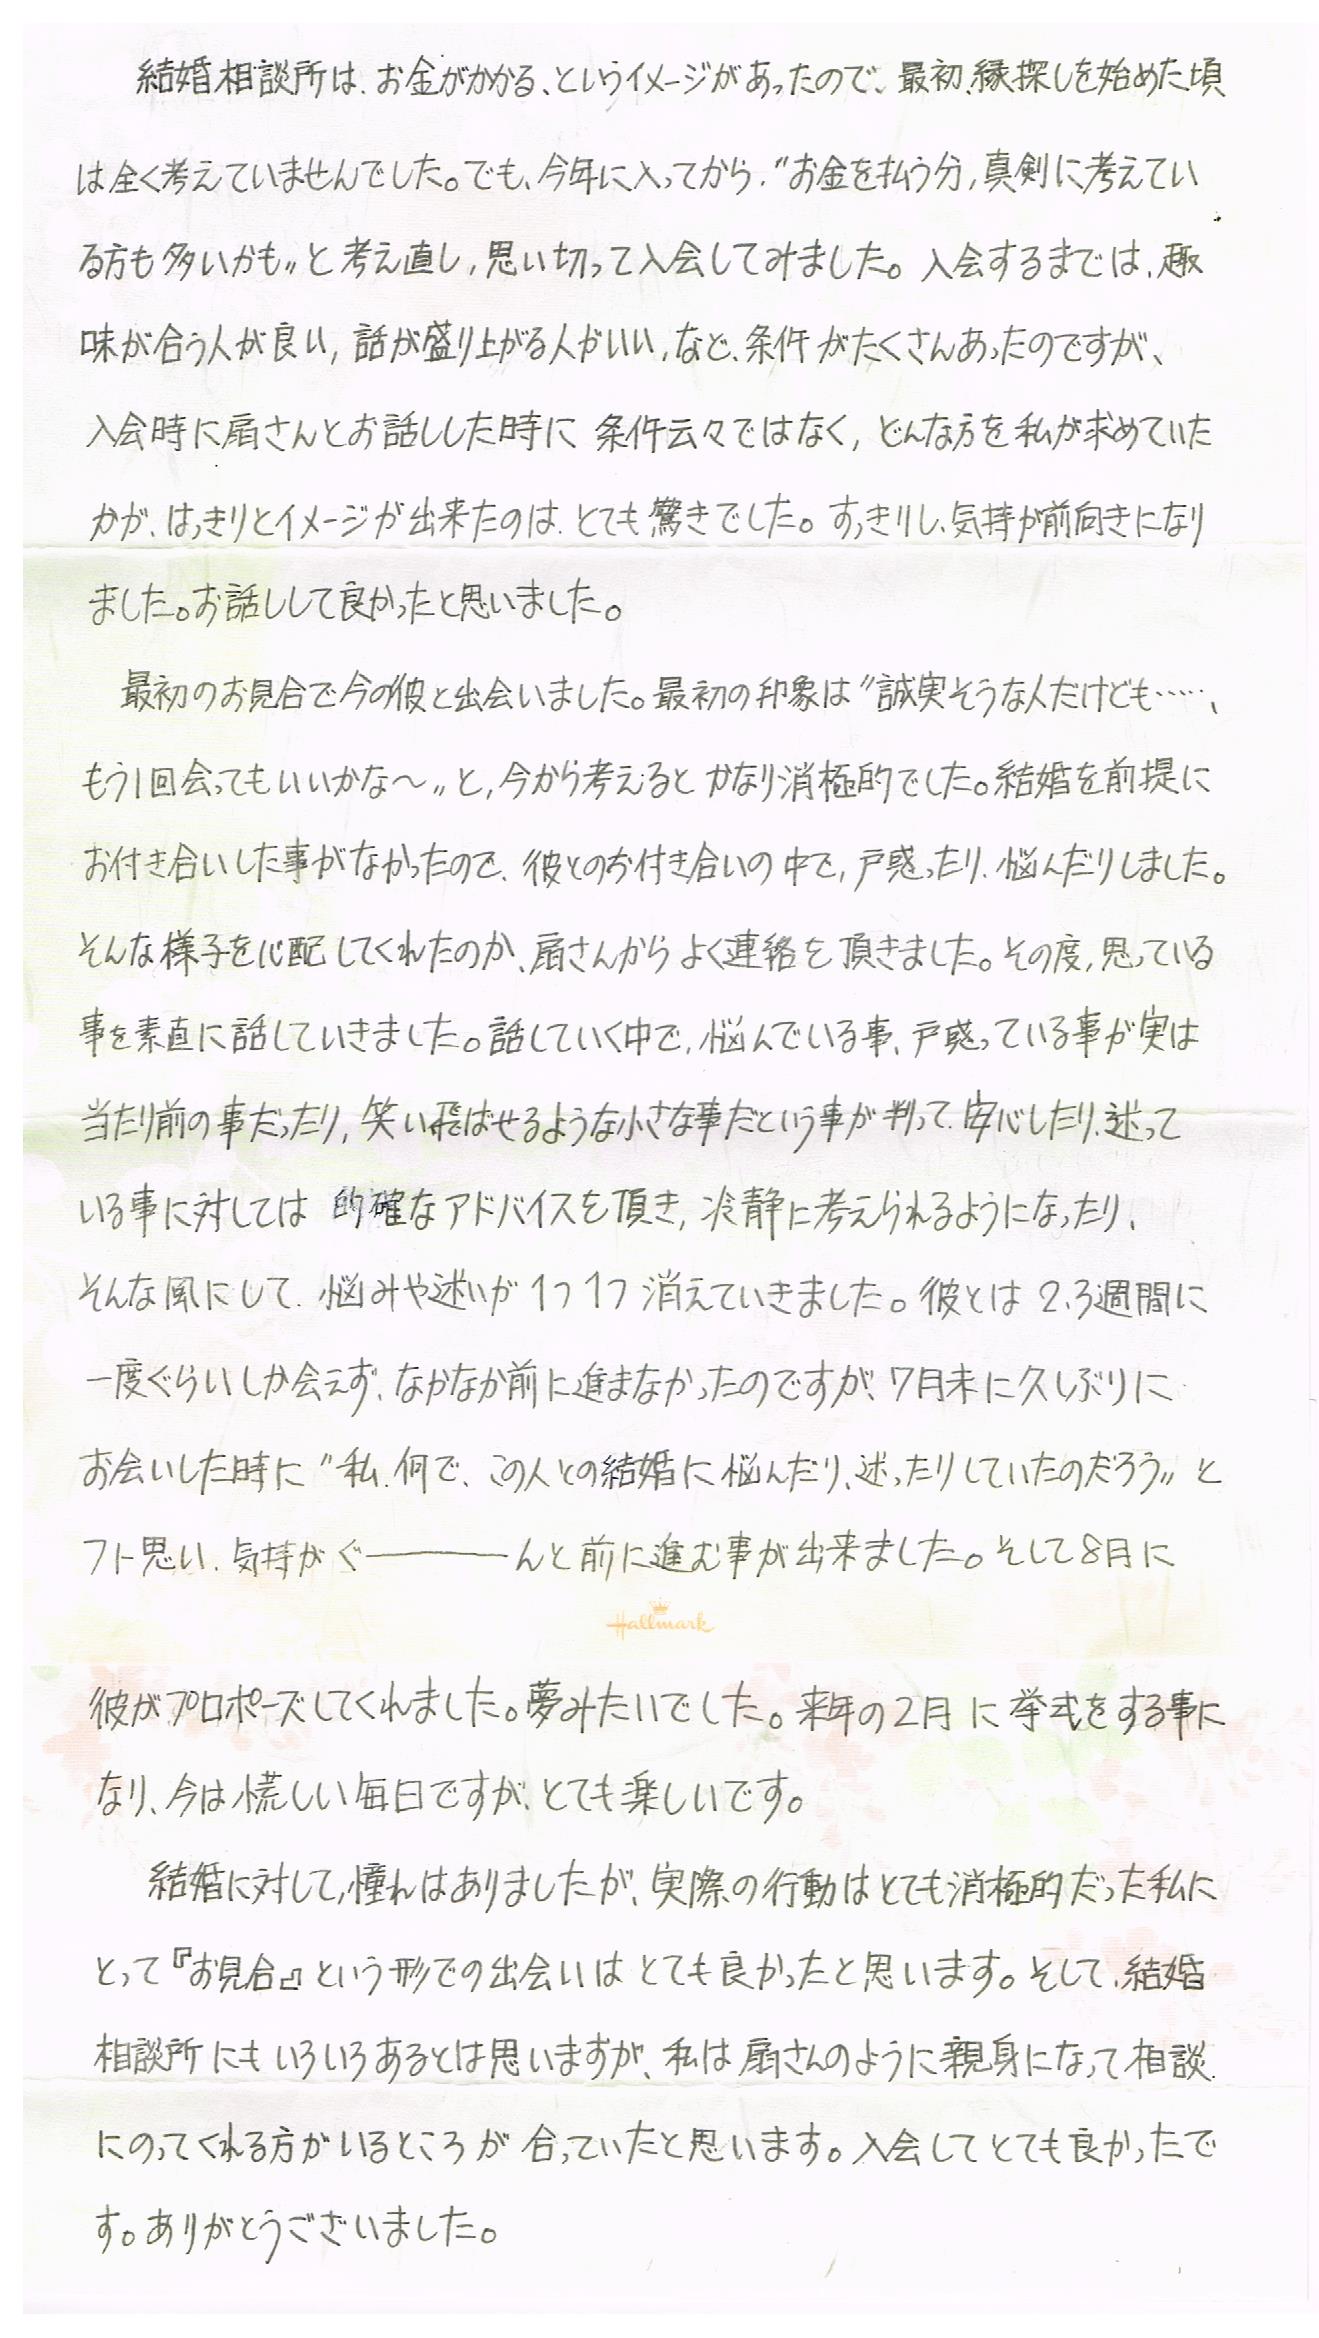 結婚相談所は、お金がかかる、というイメージがあったので、最初、縁探しを始めた頃
は全く考えていませんでした。でも、今年に入ってから、〝お金を払う分、真剣に考えてい
る方も多いかも〟と考え直し、思い切って入会してみました。入会するまでは、趣
味が合う人が良い、話が盛り上がる人がいい、など、条件がたくさんあったのですが、
入会時に扇さんとお話しした時に 条件云々ではなく、どんな方を私が求めていた
かが、はっきりとイメージが出来たのは、とても驚きでした。すっきりし、気持が前向きになり
ました。お話しして良かったと思いました。
最初のお見合で今の彼と出会いました。最初の印象は〝誠実そうな人だけども……、
もう1回会ってもいいかな〜〟と、今から考えるとかなり消極的でした。結婚を前提に
お付き合いした事がなかったので、彼とのお付き合いの中で、戸惑ったり、悩んだりしました。
そんな様子を心配してくれたのか、扇さんからよく連絡を頂きました。その度、思っている
事を素直に話していきました。話していく中で、悩んでいる事、戸惑っている事が実は
当たり前の事だったり、笑い飛ばせるような小さな事だという事が判って、安心したり、迷って
いる事に対しては 的確なアドバイスを頂き、冷静に考えられるようになったり、
そんな風にして、悩みや迷いが1つ1つ消えていきました。彼とは2、3週間に
一度ぐらいしか会えず、なかなか前に進まなかったのですが、7月末に久しぶりに
お会いした時に〝私、何で、この人との結婚に悩んだり、迷ったりしていたのだろう〟と
フト思い、気持がぐ――――んと前に進む事が出来ました。そして8月に
Hallmark
彼がプロポーズしてくれました。夢みたいでした。来年の2月に挙式をする事に
なり、今は慌しい毎日ですが、とても楽しいです。
結婚に対して、憧れはありましたが、実際の行動はとても消極的だった私に
とって『お見合』という形での出会いはとても良かったと思います。そして、結婚
相談所にもいろいろあるとは思いますが、私は扇さんのように親身になって相談
にのってくれる方がいるところが合っていたと思います。入会してとても良かったで
す。ありがとうございました。